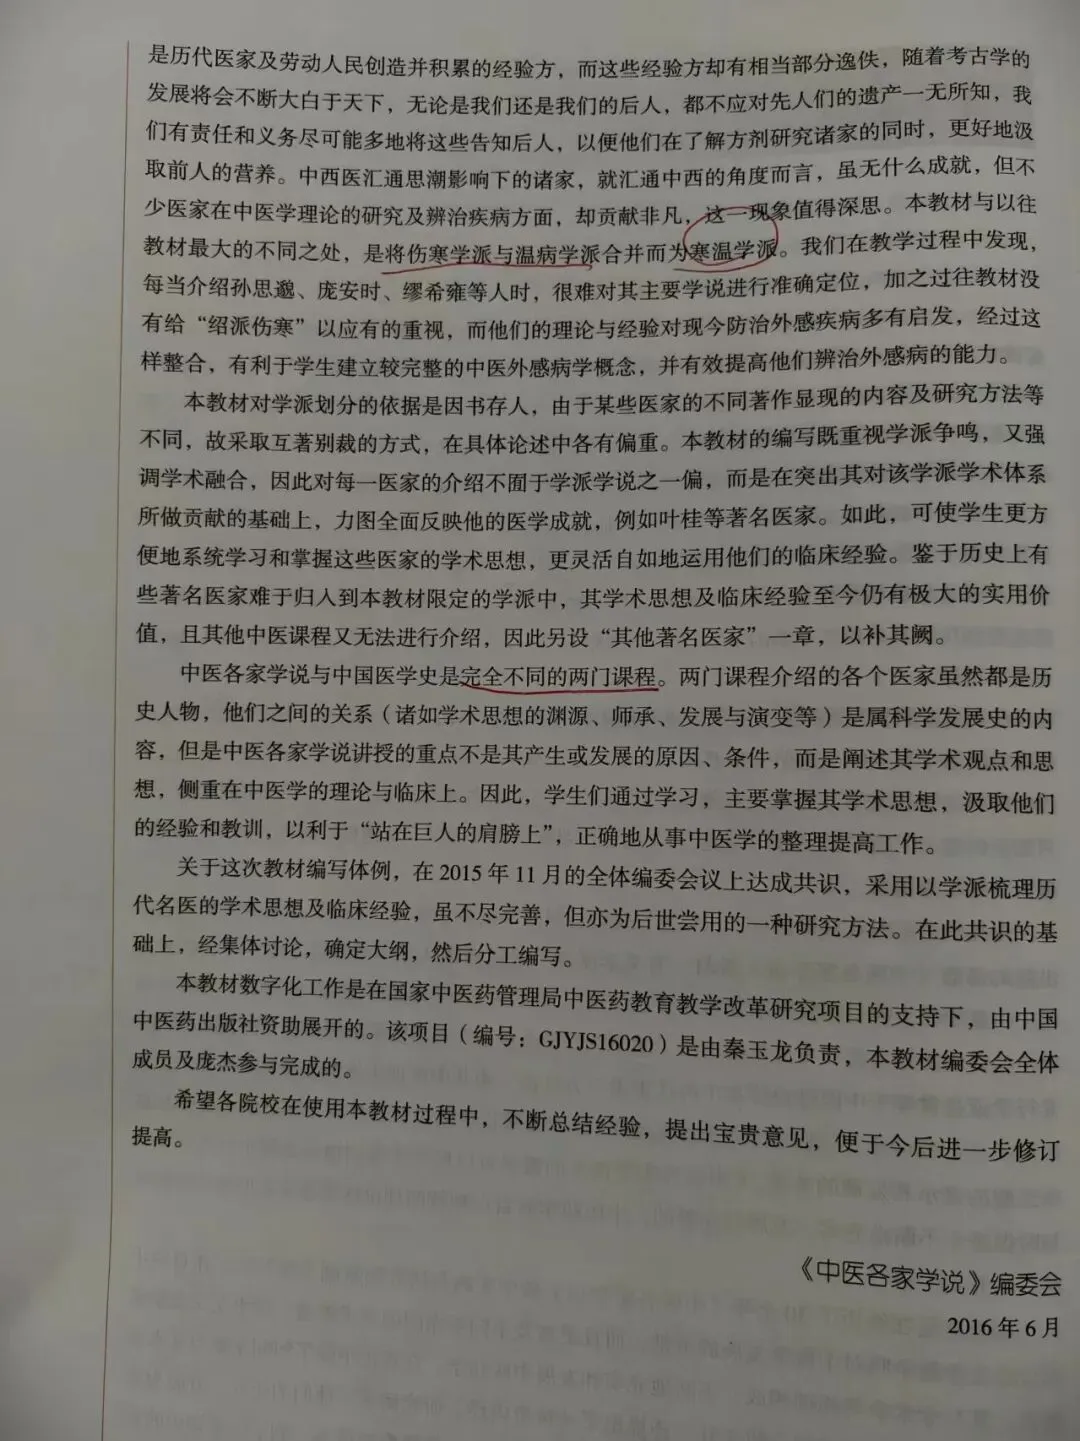 是历代医家及劳动人民创造并积累的经验方，而这些经验方却有相当部分逸佚，随着考古学的
发展将会不断大白于天下，无论是我们还是我们的后人，都不应对先人们的遗产一无所知，我
们有责任和义务尽可能多地将这些告知后人，以便他们在了解方剂研究诸家的同时，更好地汲
取前人的营养。中西医汇通思潮影响下的诸家，就汇通中西的角度而言，虽无什么成就，但不
少医家在中医学理论的研究及辨治疾病方面，却贡献非凡，这一现象值得深思。本教材与以往
教材最大的不同之处，是将伤寒学派与温病学派合并而为寒温学派。我们在教学过程中发现，
每当介绍孙思邈、庞安时、缪希雍等人时，很难对其主要学说进行准确定位，加之过往教材没
有给“绍派伤寒”以应有的重视，而他们的理论与经验对现今防治外感疾病多有启发，经过这
样整合，有利于学生建立较完整的中医外感病学概念，并有效提高他们辨治外感病的能力。
本教材对学派划分的依据是因书存人，由于某些医家的不同著作显现的内容及研究方法等
不同，故采取互著别裁的方式，在具体论述中各有偏重。本教材的编写既重视学派争鸣，又强
调学术融合，因此对每一医家的介绍不囿于学派学说之一偏，而是在突出其对该学派学术体系
所做贡献的基础上，力图全面反映他的医学成就，例如叶桂等著名医家。如此，可使学生更方
便地系统学习和掌握这些医家的学术思想，更灵活自如地运用他们的临床经验。鉴于历史上有
些著名医家难于归入到本教材限定的学派中，其学术思想及临床经验至今仍有极大的实用价
值，且其他中医课程又无法进行介绍，因此另设“其他著名医家”一章，以补其阙。
中医各家学说与中国医学史是完全不同的两门课程。两门课程介绍的各个医家虽然都是历
史人物，他们之间的关系（诸如学术思想的渊源、师承、发展与演变等）是属科学发展史的内
容，但是中医各家学说讲授的重点不是其产生或发展的原因、条件，而是阐述其学术观点和思
想，侧重在中医学的理论与临床上。因此，学生们通过学习，主要掌握其学术思想，汲取他们
的经验和教训，以利于“站在巨人的肩膀上”，正确地从事中医学的整理提高工作。
关于这次教材编写体例，在 2015 年 11 月的全体编委会议上达成共识，采用以学派梳理历
代名医的学术思想及临床经验，虽不尽完善，但亦为后世尝用的一种研究方法。在此共识的基
础上，经集体讨论，确定大纲，然后分工编写。
本教材数字化工作是在国家中医药管理局中医药教育教学改革研究项目的支持下，由中国
中医药出版社资助展开的。该项目（编号：GJYJS16020）是由秦玉龙负责，本教材编委会全体
成员及庞杰参与完成的。
希望各院校在使用本教材过程中，不断总结经验，提出宝贵意见，便于今后进一步修订
提高。
《中医各家学说》编委会
2016 年 6 月